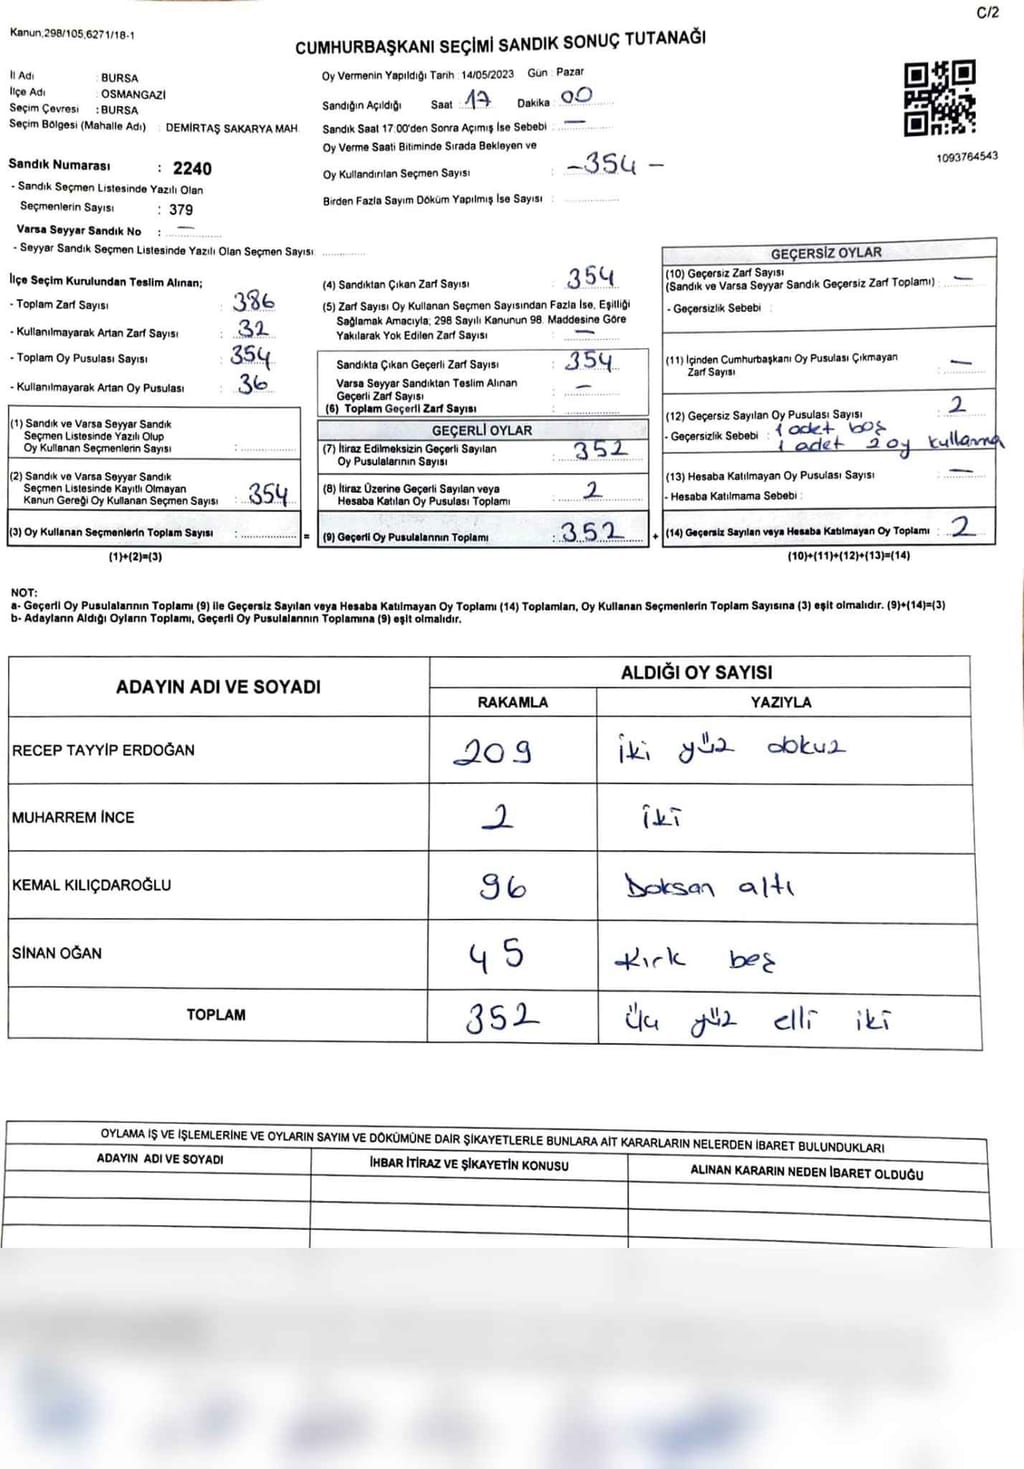 C/2
Kanun,298/105,6271/18-1
CUMHURBAŞKANI SEÇİMİ SANDIK SONUÇ TUTANAĞI
İl Adı : BURSA
İlçe Adı : OSMANGAZİ
Seçim Çevresi : BURSA
Seçim Bölgesi (Mahalle Adı) : DEMİRTAŞ SAKARYA MAH.
Sandık Numarası : 2240
- Sandık Seçmen Listesinde Yazılı Olan
Seçmenlerin Sayısı : 379
Varsa Seyyar Sandık No : —
- Seyyar Sandık Seçmen Listesinde Yazılı Olan Seçmen Sayısı
Oy Vermenin Yapıldığı Tarih : 14/05/2023 Gün : Pazar
Sandığın Açıldığı Saat : 17 Dakika : 00
Sandık Saat 17:00'den Sonra Açımış İse Sebebi : —
Oy Verme Saati Bitiminde Sırada Bekleyen ve
Oy Kullandırılan Seçmen Sayısı : -354-
Birden Fazla Sayım Döküm Yapılmış İse Sayısı :
1093764543
İlçe Seçim Kurulundan Teslim Alınan;
- Toplam Zarf Sayısı : 386
- Kullanılmayarak Artan Zarf Sayısı : 32
- Toplam Oy Pusulası Sayısı : 354
- Kullanılmayarak Artan Oy Pusulası : 36
(1) Sandık ve Varsa Seyyar Sandık
Seçmen Listesinde Yazılı Olup
Oy Kullanan Seçmenlerin Sayısı :
(2) Sandık ve Varsa Seyyar Sandık
Seçmen Listesinde Kayıtlı Olmayan
Kanun Gereği Oy Kullanan Seçmen Sayısı : 354
(3) Oy Kullanan Seçmenlerin Toplam Sayısı :
(1)+(2)=(3)
(4) Sandıktan Çıkan Zarf Sayısı : 354
(5) Zarf Sayısı Oy Kullanan Seçmen Sayısından Fazla İse, Eşitliği
Sağlamak Amacıyla; 298 Sayılı Kanunun 98. Maddesine Göre
Yakılarak Yok Edilen Zarf Sayısı : —
Sandıkta Çıkan Geçerli Zarf Sayısı : 354
Varsa Seyyar Sandıktan Teslim Alınan
Geçerli Zarf Sayısı : —
(6) Toplam Geçerli Zarf Sayısı :
GEÇERLİ OYLAR
(7) İtiraz Edilmeksizin Geçerli Sayılan
Oy Pusulalarının Sayısı : 352
(8) İtiraz Üzerine Geçerli Sayılan veya
Hesaba Katılan Oy Pusulası Toplamı : 2
= (9) Geçerli Oy Pusulalarının Toplamı : 352
GEÇERSİZ OYLAR
(10) Geçersiz Zarf Sayısı
(Sandık ve Varsa Seyyar Sandık Geçersiz Zarf Toplamı) : —
- Geçersizlik Sebebi :
(11) İçinden Cumhurbaşkanı Oy Pusulası Çıkmayan
Zarf Sayısı : —
(12) Geçersiz Sayılan Oy Pusulası Sayısı : 2
- Geçersizlik Sebebi : 1 adet boş
1 adet 2 oy kullanma
(13) Hesaba Katılmayan Oy Pusulası Sayısı : —
- Hesaba Katılmama Sebebi :
+ (14) Geçersiz Sayılan veya Hesaba Katılmayan Oy Toplamı : 2
(10)+(11)+(12)+(13)=(14)
NOT:
a- Geçerli Oy Pusulalarının Toplamı (9) ile Geçersiz Sayılan veya Hesaba Katılmayan Oy Toplamı (14) Toplamları, Oy Kullanan Seçmenlerin Toplam Sayısına (3) eşit olmalıdır. (9)+(14)=(3)
b- Adayların Aldığı Oyların Toplamı, Geçerli Oy Pusulalarının Toplamına (9) eşit olmalıdır.
ADAYIN ADI VE SOYADI
ALDIĞI OY SAYISI
RAKAMLA YAZIYLA
RECEP TAYYİP ERDOĞAN 209 iki yüz dokuz
MUHARREM İNCE 2 iki
KEMAL KILIÇDAROĞLU 96 Doksan altı
SİNAN OĞAN 45 Kırk beş
TOPLAM 352 üç yüz elli iki
OYLAMA İŞ VE İŞLEMLERİNE VE OYLARIN SAYIM VE DÖKÜMÜNE DAİR ŞİKAYETLERLE BUNLARA AİT KARARLARIN NELERDEN İBARET BULUNDUKLARI
ADAYIN ADI VE SOYADI İHBAR İTİRAZ VE ŞİKAYETİN KONUSU ALINAN KARARIN NEDEN İBARET OLDUĞU